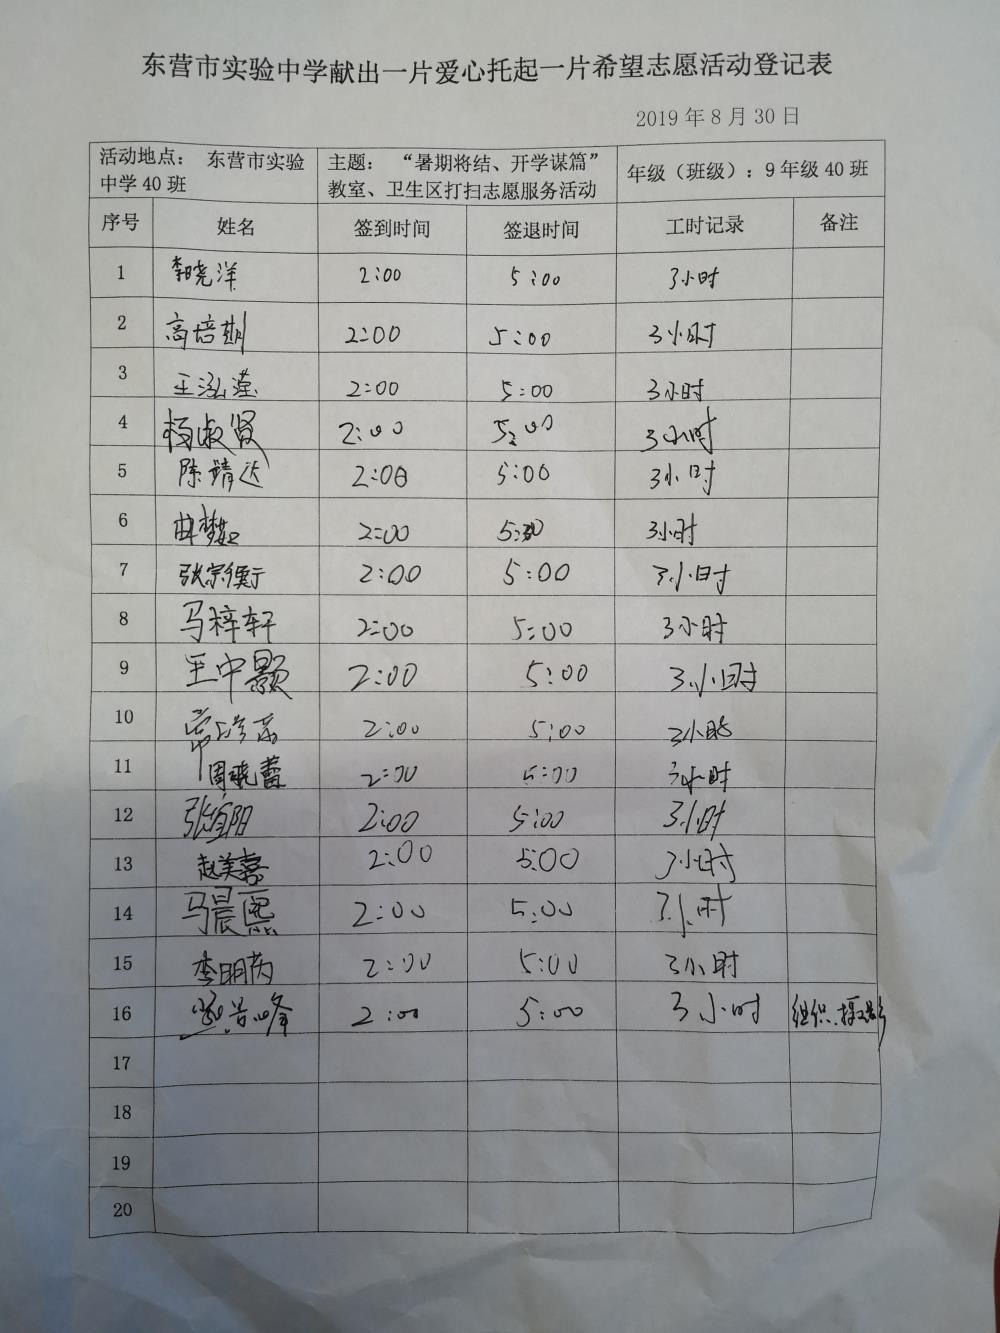 东营市实验中学献出一片爱心托起一片希望志愿活动登记表
2019 年 8 月 30 日
活动地点： 东营市实验中学40班 主题： “暑期将结、开学谋篇”教室、卫生区打扫志愿服务活动 年级（班级）：9 年级 40 班
序号 姓名 签到时间 签退时间 工时记录 备注
1 李晓洋 2:00 5:00 3小时
2 高培 2:00 5:00 3小时
3 王泓滢 2:00 5:00 3小时
4 杨淑贤 2:00 5:00 3小时
5 陈靖达 2:00 5:00 3小时
6 2:00 5:00 3小时
7 张宗衡 2:00 5:00 3小时
8 马梓轩 2:00 5:00 3小时
9 王中颢 2:00 5:00 3小时
10 2:00 5:00 3小时
11 周晓蕾 2:00 5:00 3小时
12 张宜阳 2:00 5:00 3小时
13 赵美嘉 2:00 5:00 3小时
14 马晨熙 2:00 5:00 3小时
15 李明芮 2:00 5:00 3小时
16 2:00 5:00 3小时 组织、摄影
17
18
19
20